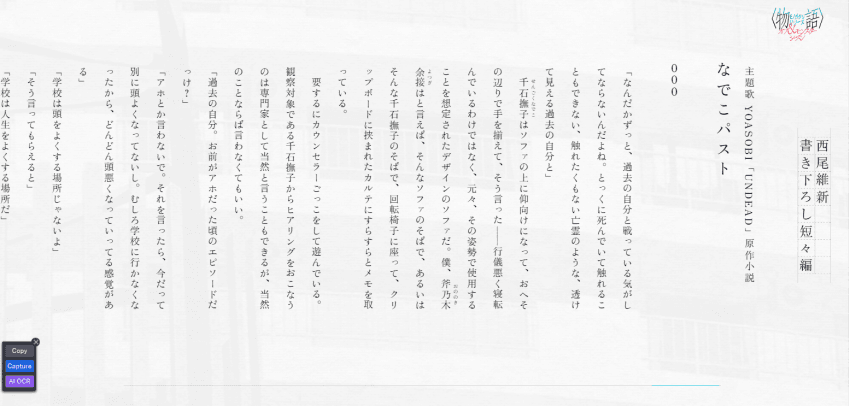 〈物語〉
西尾維新
書き下ろし短々編
主題歌 YOASOBI「UNDEAD」原作小説
なでこパスト
000
「なんだかずっと、過去の自分と戦っている気がし
てならないんだよね。とっくに死んでいて触れるこ
ともできない、触れたくもない亡霊のような、透け
て見える過去の自分と」
千石撫子はソファの上に仰向けになって、おへそ
の辺りで手を揃えて、そう言った――行儀悪く寝転
んでいるわけではなく、元々、その姿勢で使用する
ことを想定されたデザインのソファだ。僕、斧乃木
余接はと言えば、そんなソファのそばで、あるいは
そんな千石撫子のそばで、回転椅子に座って、クリ
ップボードに挟まれたカルテにすらすらとメモを取
っている。
要するにカウンセラーごっこをして遊んでいる。
観察対象である千石撫子からヒアリングをおこなう
のは専門家として当然と言うこともできるが、当然
のことならば言わなくてもいい。
「過去の自分。お前がアホだった頃のエピソードだ
っけ?」
「アホとか言わないで。それを言ったら、今だって
別に頭よくなってないし。むしろ学校に行かなくな
ったから、どんどん頭悪くなっていってる感覚があ
る」
「学校は頭をよくする場所じゃないよ」
「そう言ってもらえると」
「学校は人生をよくする場所だ」
Copy
Capture
AI OCR